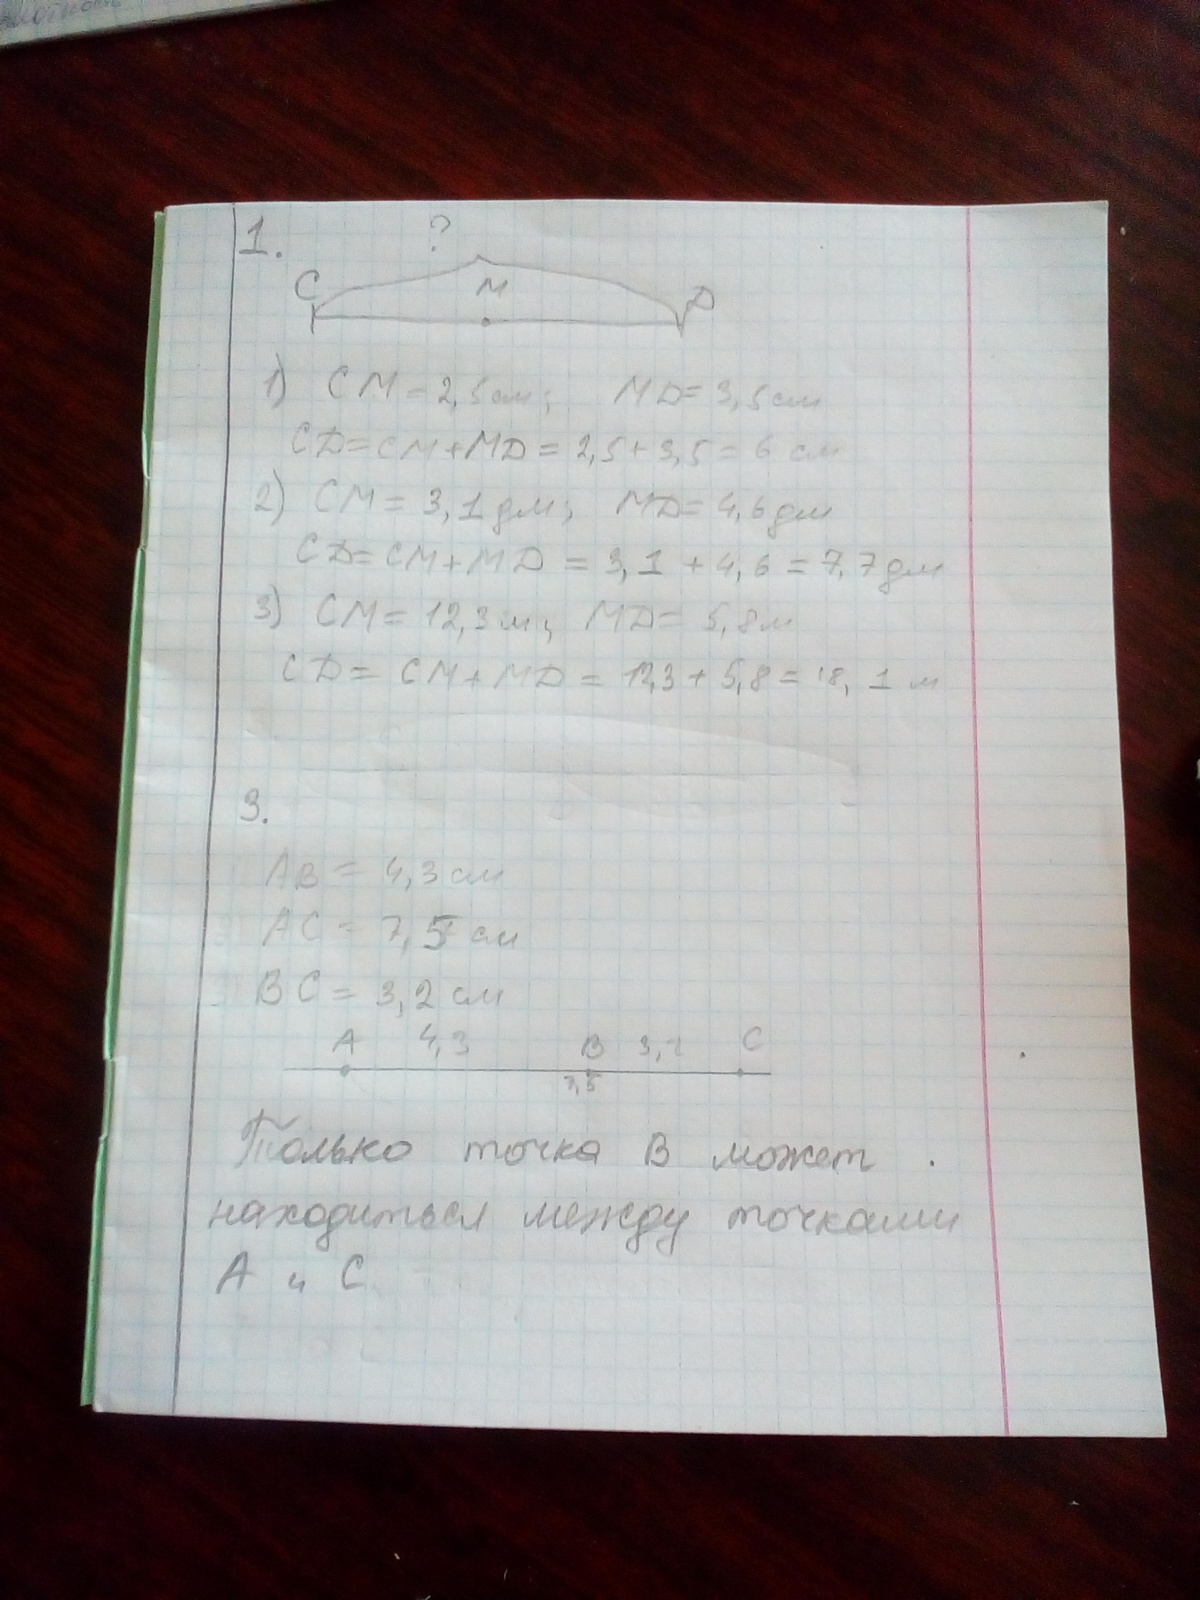 1.
?
C M D
1) CM = 2,5 см; MD = 3,5 см
CD = CM + MD = 2,5 + 3,5 = 6 см
2) CM = 3,1 дм; MD = 4,6 дм
CD = CM + MD = 3,1 + 4,6 = 7,7 дм
3) CM = 12,3 м; MD = 5,8 м
CD = CM + MD = 12,3 + 5,8 = 18,1 м
3.
AB = 4,3 см
AC = 7,5 см
BC = 3,2 см
A 4,3 B 3,2 C
7,5
Только точка B может
находиться между точками
A и C